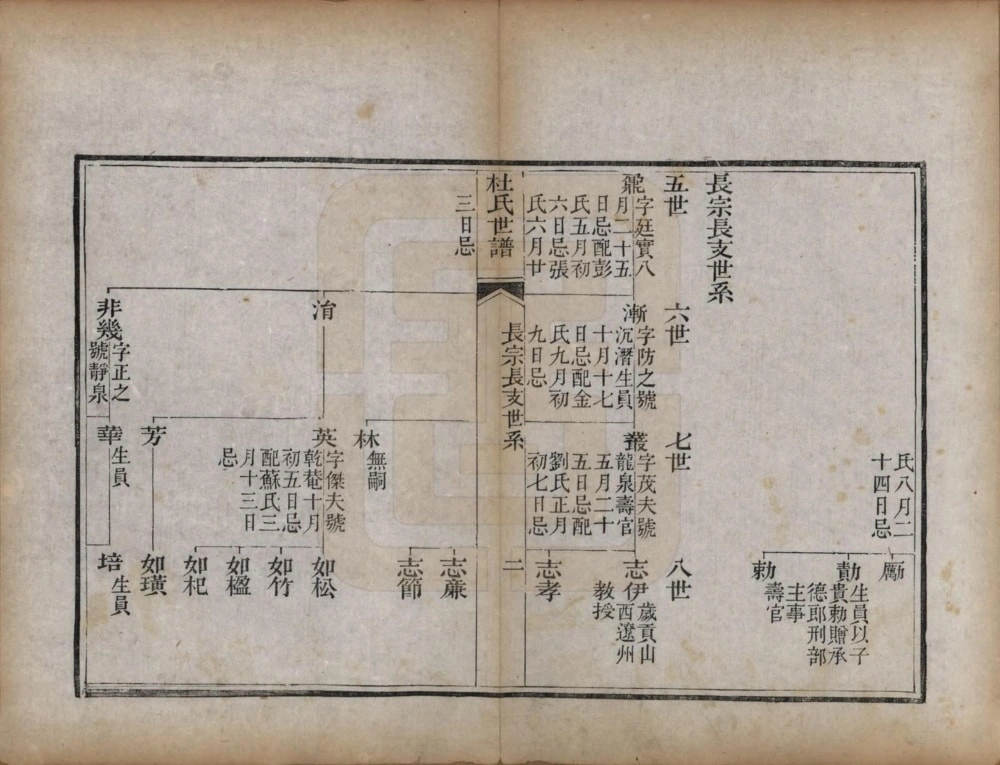 氏八月二
十四日忌
勵
勷
生員以子
貴勅贈承
德郎刑部
主事
勅
壽官
長宗長支世系
五世
六世
七世
八世
鼐
字庭實八
月二十五
日忌配彭
氏五月初
六日忌張
氏六月廿
漸
字防之號
沉潛生員
十月十七
日忌配金
氏九月初
九日忌
叢
字茂夫號
龍泉壽官
五月二十
五日忌配
劉氏正月
初七日忌
志伊
歲貢山
西遼州
教授
志孝
杜氏世譜
長宗長支世系
二
三日忌
志亷
志節
淯
林
無嗣
英
字傑夫號
乾菴十月
初五日忌
配蘇氏三
月十三日
忌
如松
如竹
如楹
如杞
芳
如璜
非幾
字正之
號靜泉
華
生員
培
生員